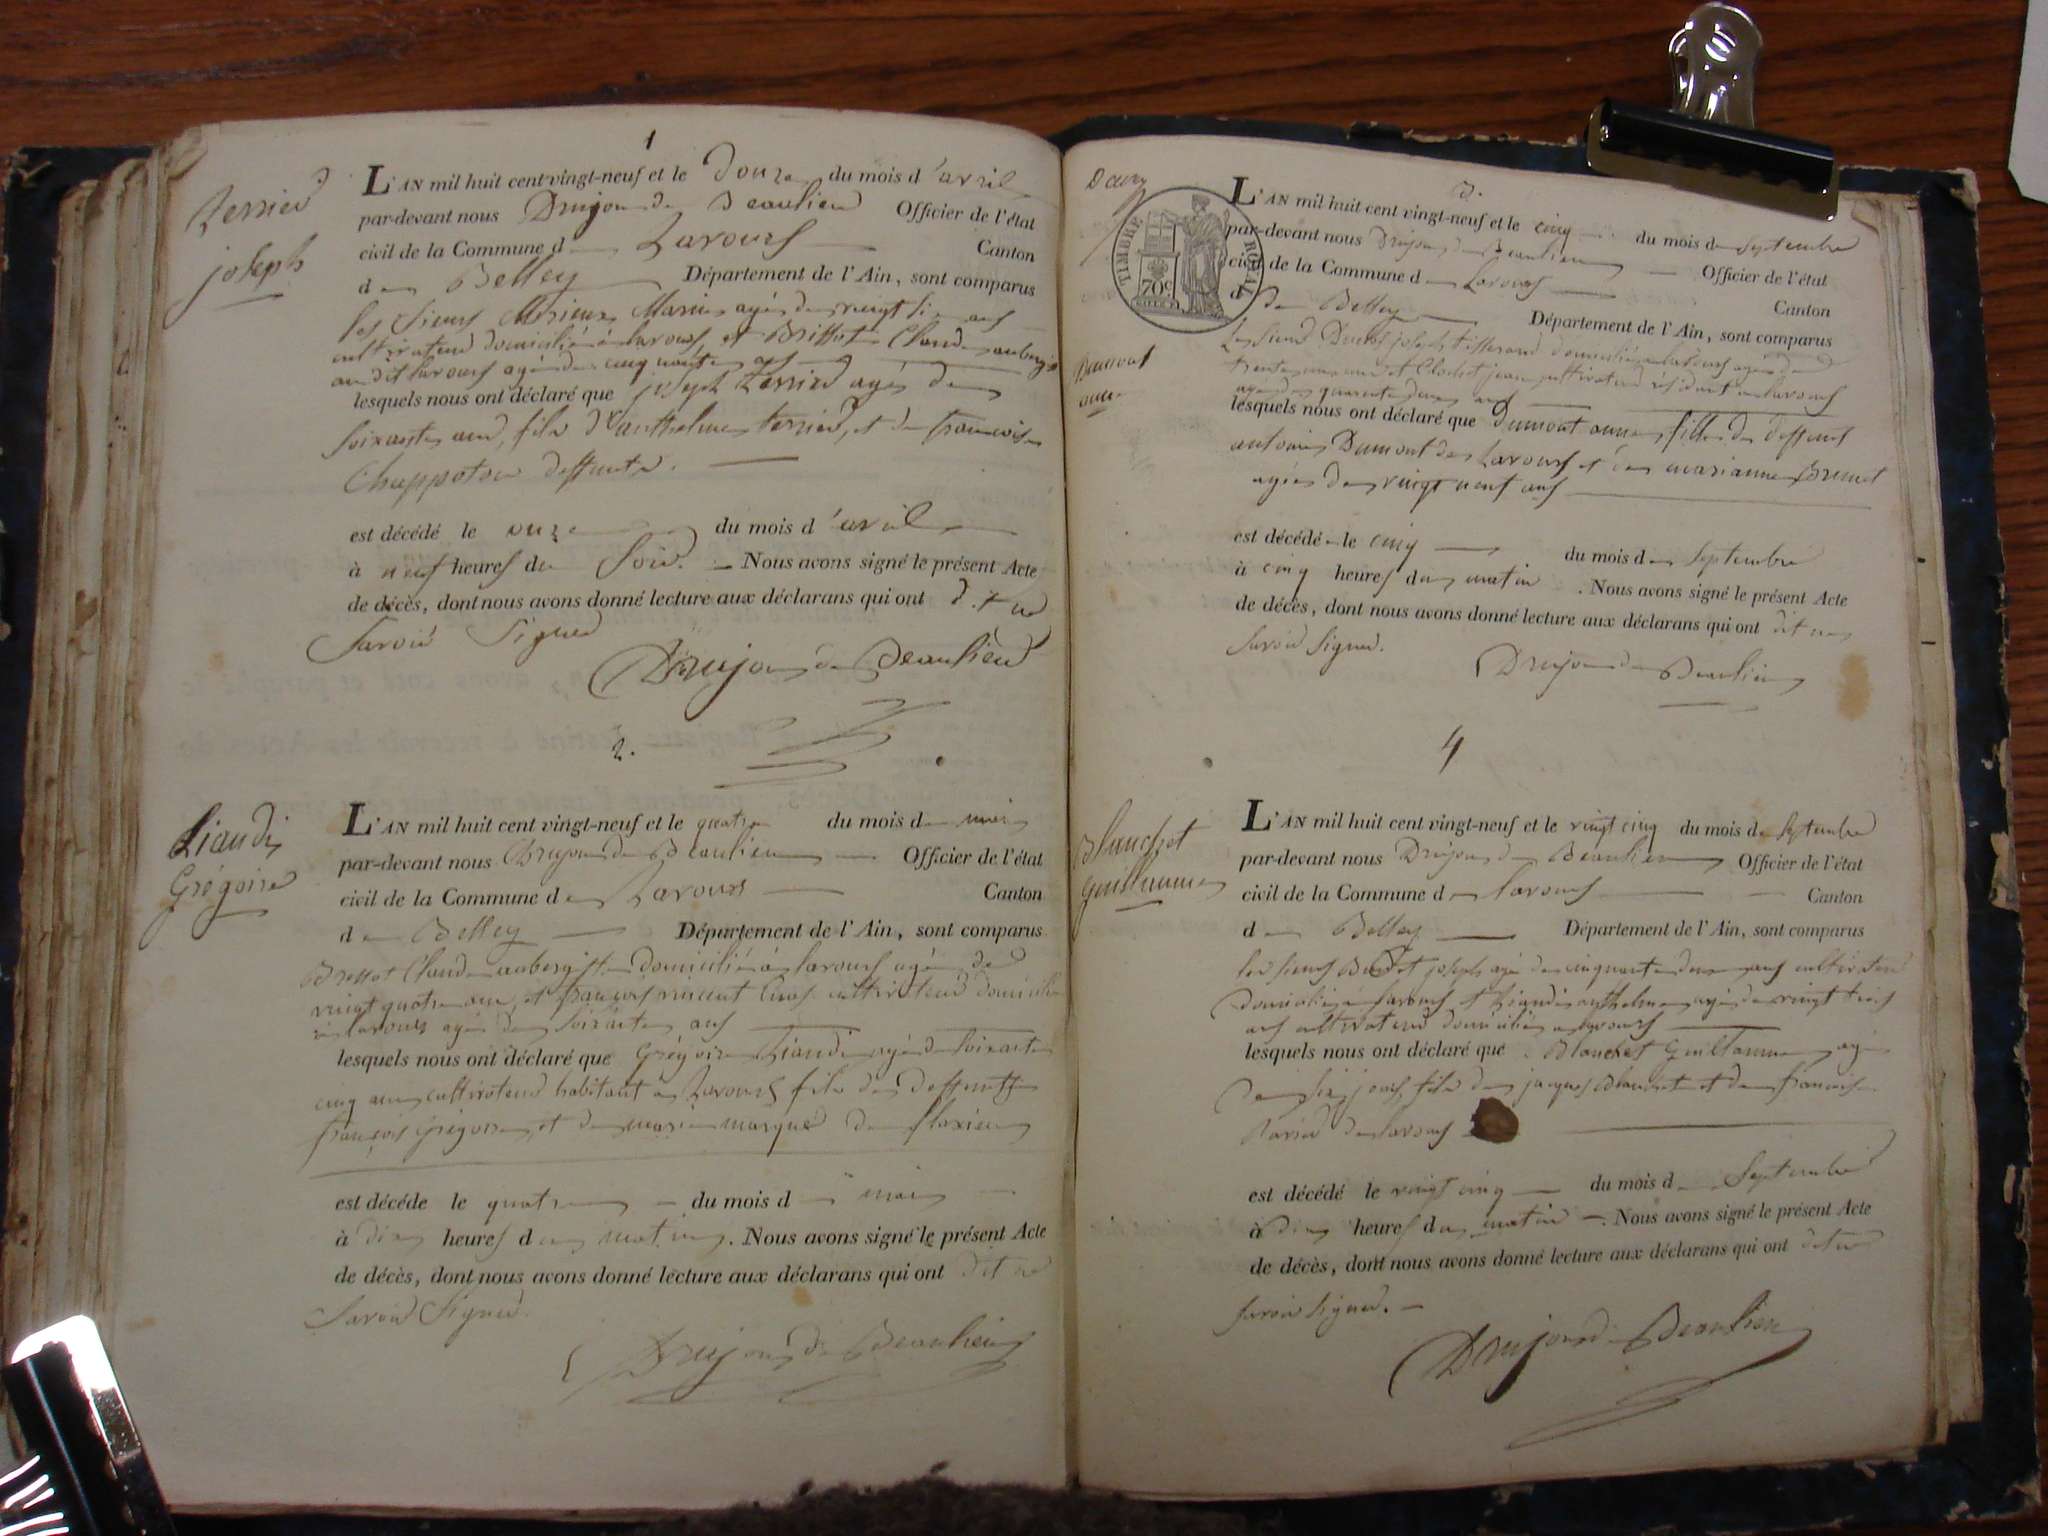 1
Terrier
joseph
L'AN mil huit cent vingt-neuf et le douze du mois d'avril
par-devant nous Drujon de Beaulieu Officier de l'état
civil de la Commune de Lavours Canton
de Belley Département de l'Ain, sont comparus
les sieurs Marin agé de vingt ans
cultivateur domicilié à lavours et Briffot Claude aubergiste
audit lavours agé de cinquante ans
lesquels nous ont déclaré que joseph terrier agé de
soixante ans, fils d'anthelme terrier, et de francoise
Chappoton deffunte.
est décédé le onze du mois d'avril
à neuf heures du soir. Nous avons signé le présent Acte
de décès, dont nous avons donné lecture aux déclarans qui ont dit ne
savoir signer
Drujon de Beaulieu
2.
Liaudi
Grégoire
L'AN mil huit cent vingt-neuf et le quatre du mois de mai
par-devant nous Drujon de Beaulieu Officier de l'état
civil de la Commune de Lavours Canton
de Belley Département de l'Ain, sont comparus
Claude aubergiste domicilié à lavours agé de
vingt quatre ans, et françois vincent cultivateur domicilié
à lavours agé de soixante ans
lesquels nous ont déclaré que Grégoire Liaudi agé de soixante
cinq ans cultivateur habitant a Lavours fils de deffunts
françois Grégoire, et de marie de flaxieu
est décéde le quatre du mois de mai
à dix heures du matin. Nous avons signé le présent Acte
de décès, dont nous avons donné lecture aux déclarans qui ont dit ne
savoir signer.
Drujon de Beaulieu
3.
TIMBRE ROYAL
70c
Dumont
anne
L'AN mil huit cent vingt-neuf et le cinq du mois de septembre
par-devant nous Drujon de Beaulieu Officier de l'état
civil de la Commune de Lavours Canton
d de Belley Département de l'Ain, sont comparus
Les sieurs joseph tisserand domicilié à lavours agé de
trente ans et Clochet jean cultivateur résidant a lavours
agé de quarante ans
lesquels nous ont déclaré que dumont anne fille de deffunt
antoine Dumont de Lavours et de marianne Brunet
agée de vingt neuf ans
est décédé le cinq du mois de septembre
à cinq heures du matin. Nous avons signé le présent Acte
de décés, dont nous avons donné lecture aux déclarans qui ont dit ne
savoir signer.
Drujon de Beaulieu
4
Blanchet
guillaume
L'AN mil huit cent vingt-neuf et le vingt cinq du mois de septembre
par-devant nous Drujon de Beaulieu Officier de l'état
civil de la Commune de lavours Canton
de Belley Département de l'Ain, sont comparus
les sieurs joseph agé de cinquante deux ans cultivateur
domicilié à lavours et Liaudi anthelme agé de vingt trois
ans cultivateur domicilié a lavours
lesquels nous ont déclaré que Blanchet Guillaume agé
de six jours fils de jacques Blanchet et de francoise
de lavours
est décédé le vingt cinq du mois de Septembre
à dix heures du matin. Nous avons signé le présent Acte
de décès, dont nous avons donné lecture aux déclarans qui ont dit ne
savoir signer.
Drujon de Beaulieu